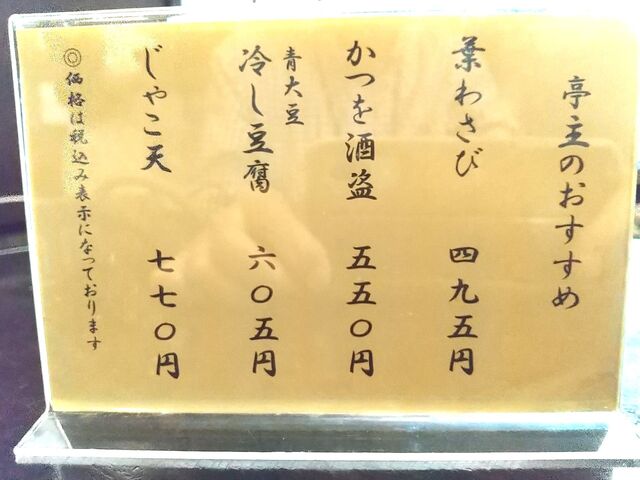 亭主のおすすめ
葉わさび 四九五円
かつを酒盗 五五〇円
青大豆
冷し豆腐 六〇五円
じゃこ天 七七〇円
◎価格は税込み表示になっております